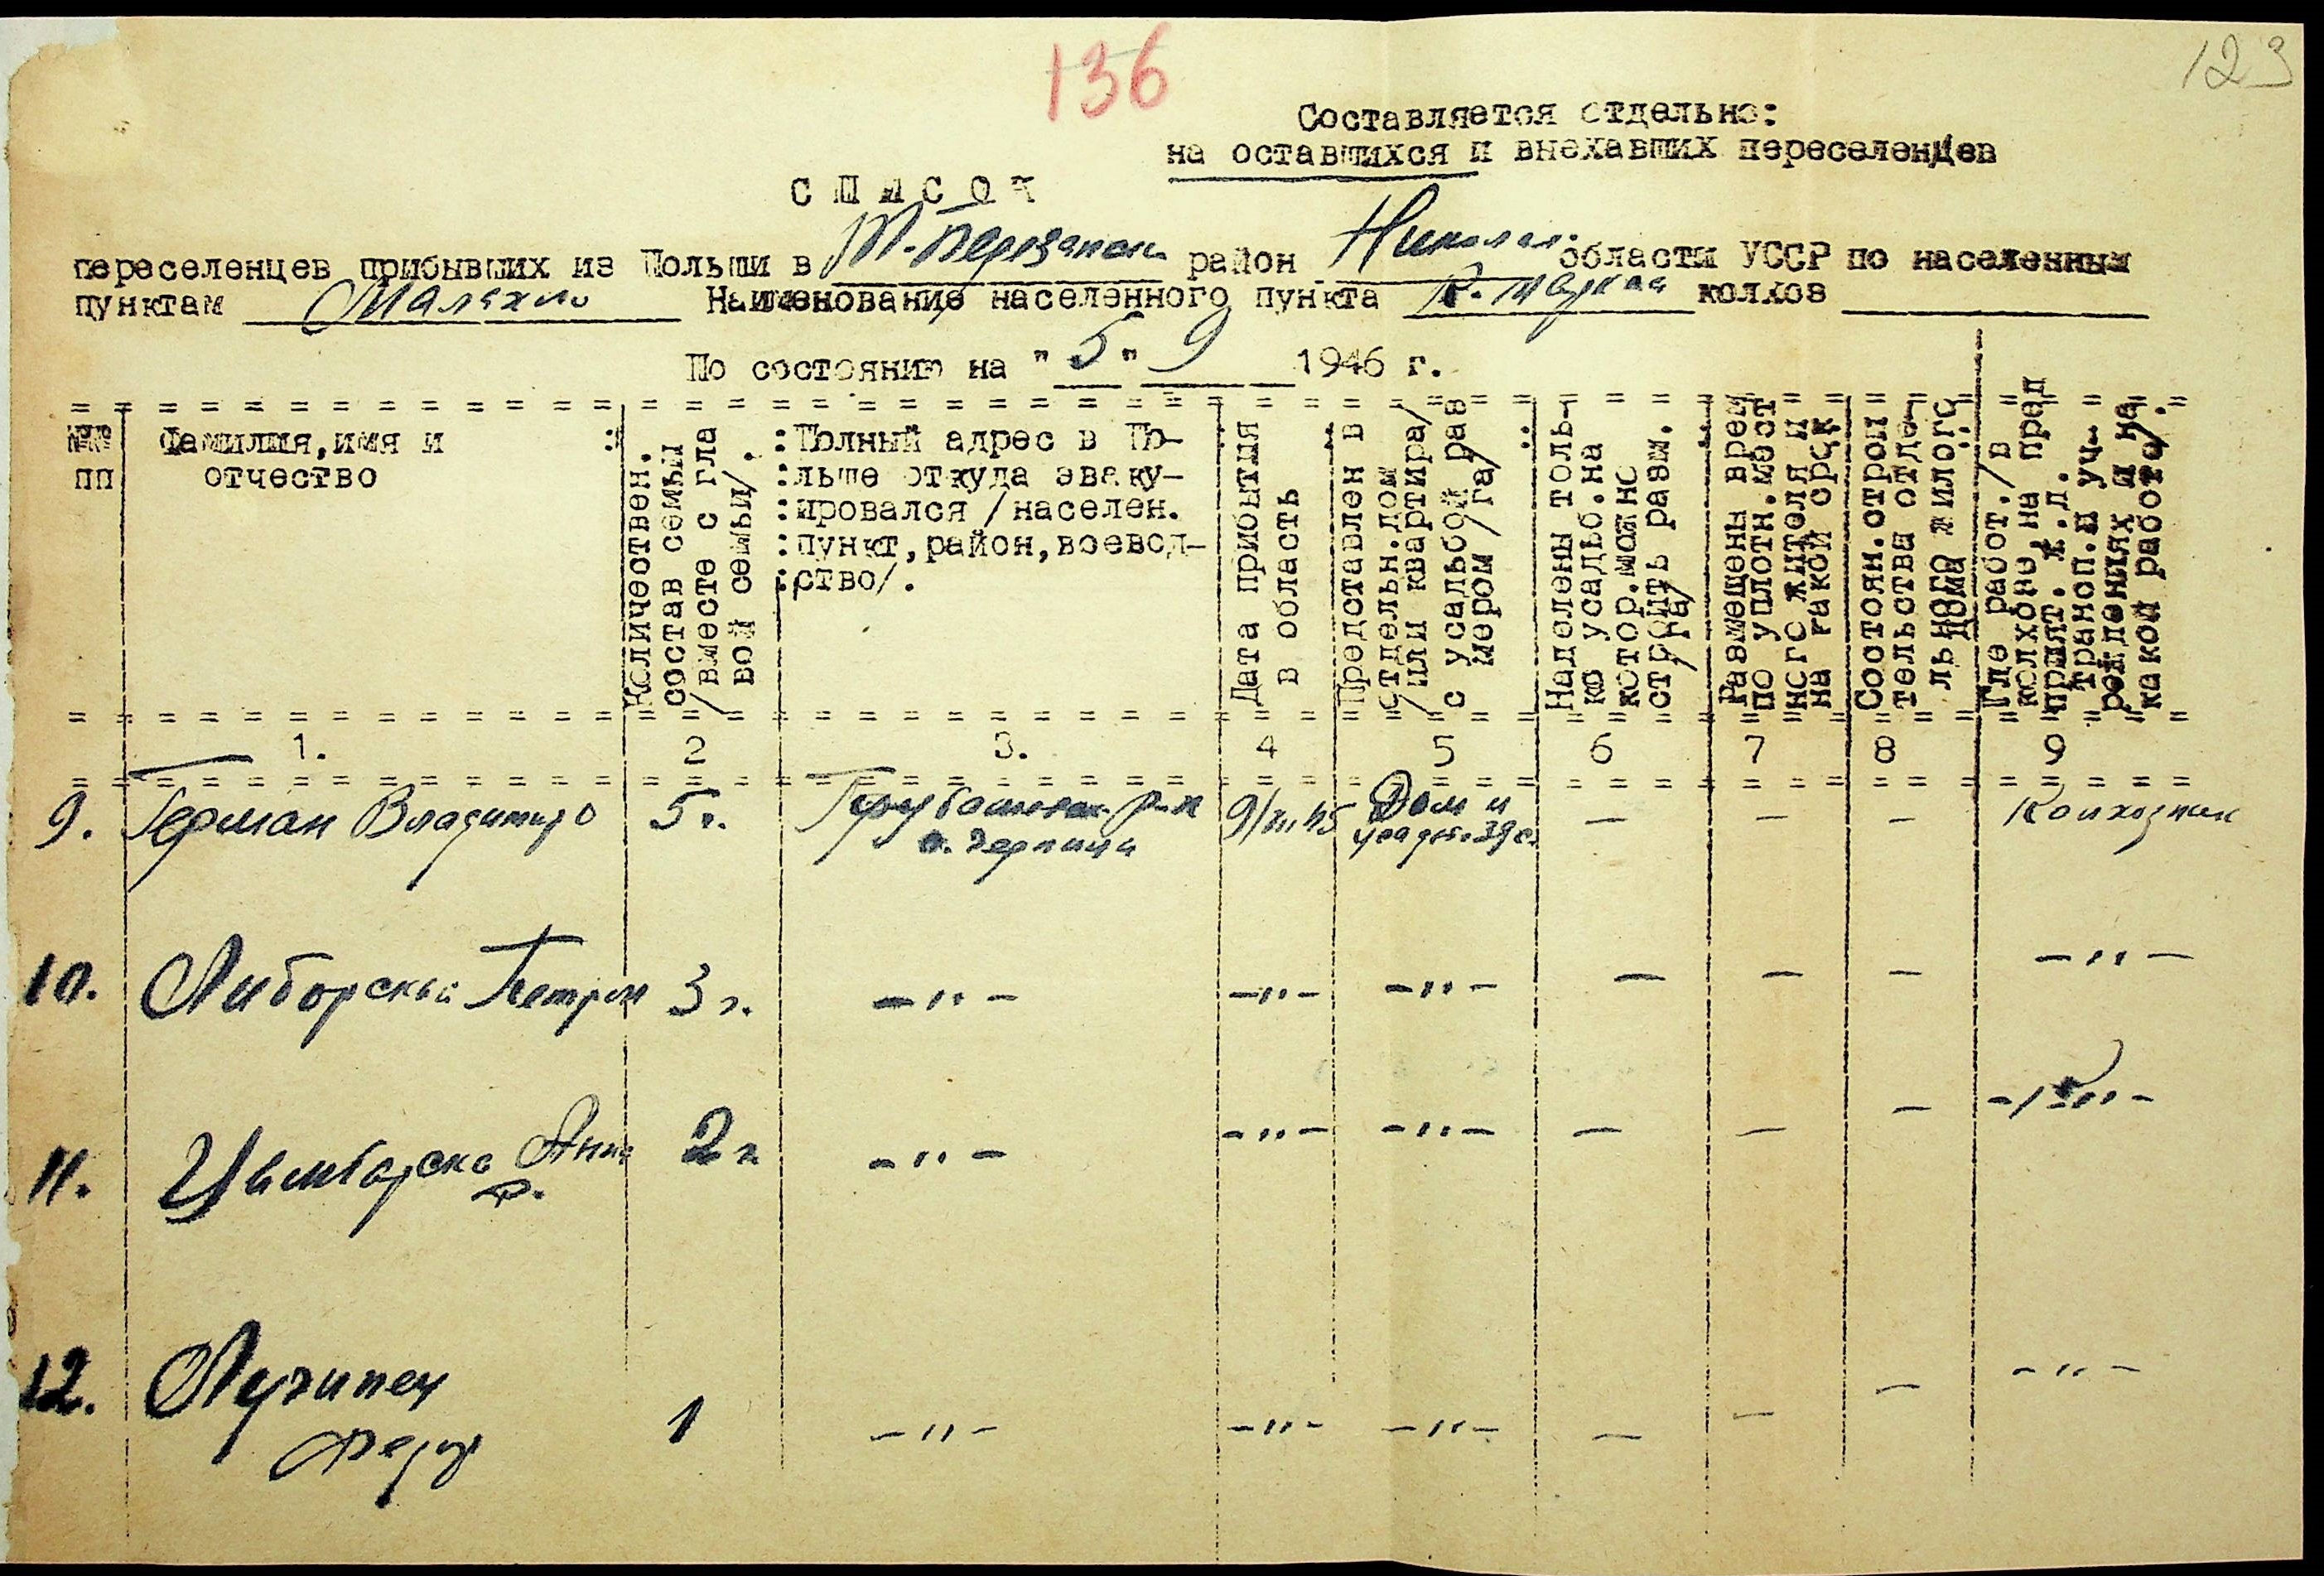 136
123
Составляется отдельно:
на оставшихся и внехавших переселенцев
С П И С О К
переселенцев прибывших из Польши в Т-Березанск район Николаев. области УССР по населенным
пунктам Малахио Наименование населенного пункта К. Маркса колхоз
По состоянию на "5" 9 1946 г.
№№ пп
Фамилия, имя и отчество
Количествен. состав семьи /вместе с гла вой семьи/.
:Полный адрес в По-
:льше откуда эваку-
:ировался /населен.
:пункт, район, воевод-
:ство/.
Дата прибытия в область
Представлен в отдельн.дом /или квартира/ с усадьбой рав мером /га/
Наделены толь- ко усадьб.на котор.можно строить разм. /га/
Размещены врем по уплотн.мест ного жителя и на какой срок
Состоян.строи тельства отде- льного жилого дома
Где работ./в колхозе,на пред прият. ж.д. трансп.и уч- реждениях и на какой работе/.
1. 2 3. 4 5 6 7 8 9
9. Герман Владимир 5 ч. Грубешовск. р-н 9/III 45 Дом и — — — Колхозник
усадьб. 39 с.
10. Либорский Петро 3 ч. -"- -"- -"- — — — -"-
11. Цымбарска Анна 2 ч -"- -"- -"- — — — -"-
Ф.
12. Лучинец
Федор 1 -"- -"- -"- — — — -"-